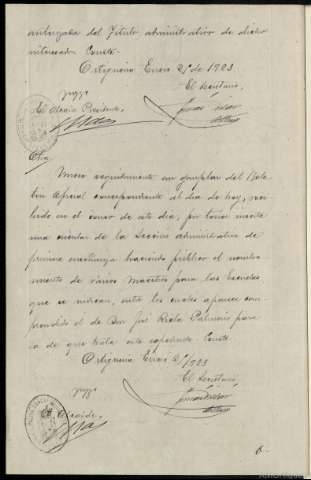 autorizada del Título administrativo de dicho
interesado. Conste.
Ortigueira Enero 21 de 1903
El Secretario,
El Alcalde Presidente,
Otra
Unese seguidamente un ejemplar del Bole
tín oficial correspondiente al día de hoy, reci
bido en el correo de este día, por tener inserta
una circular de la Sección administrativa de
primera enseñanza haciendo público el nombra
miento de varios Maestros para las Escuelas
que se indican, entre los cuales aparece com
prendido el de Don José Recla para
la de que trata este expediente. Conste.
Ortigueira Enero 21/903
El Secretario,
El Alcalde,